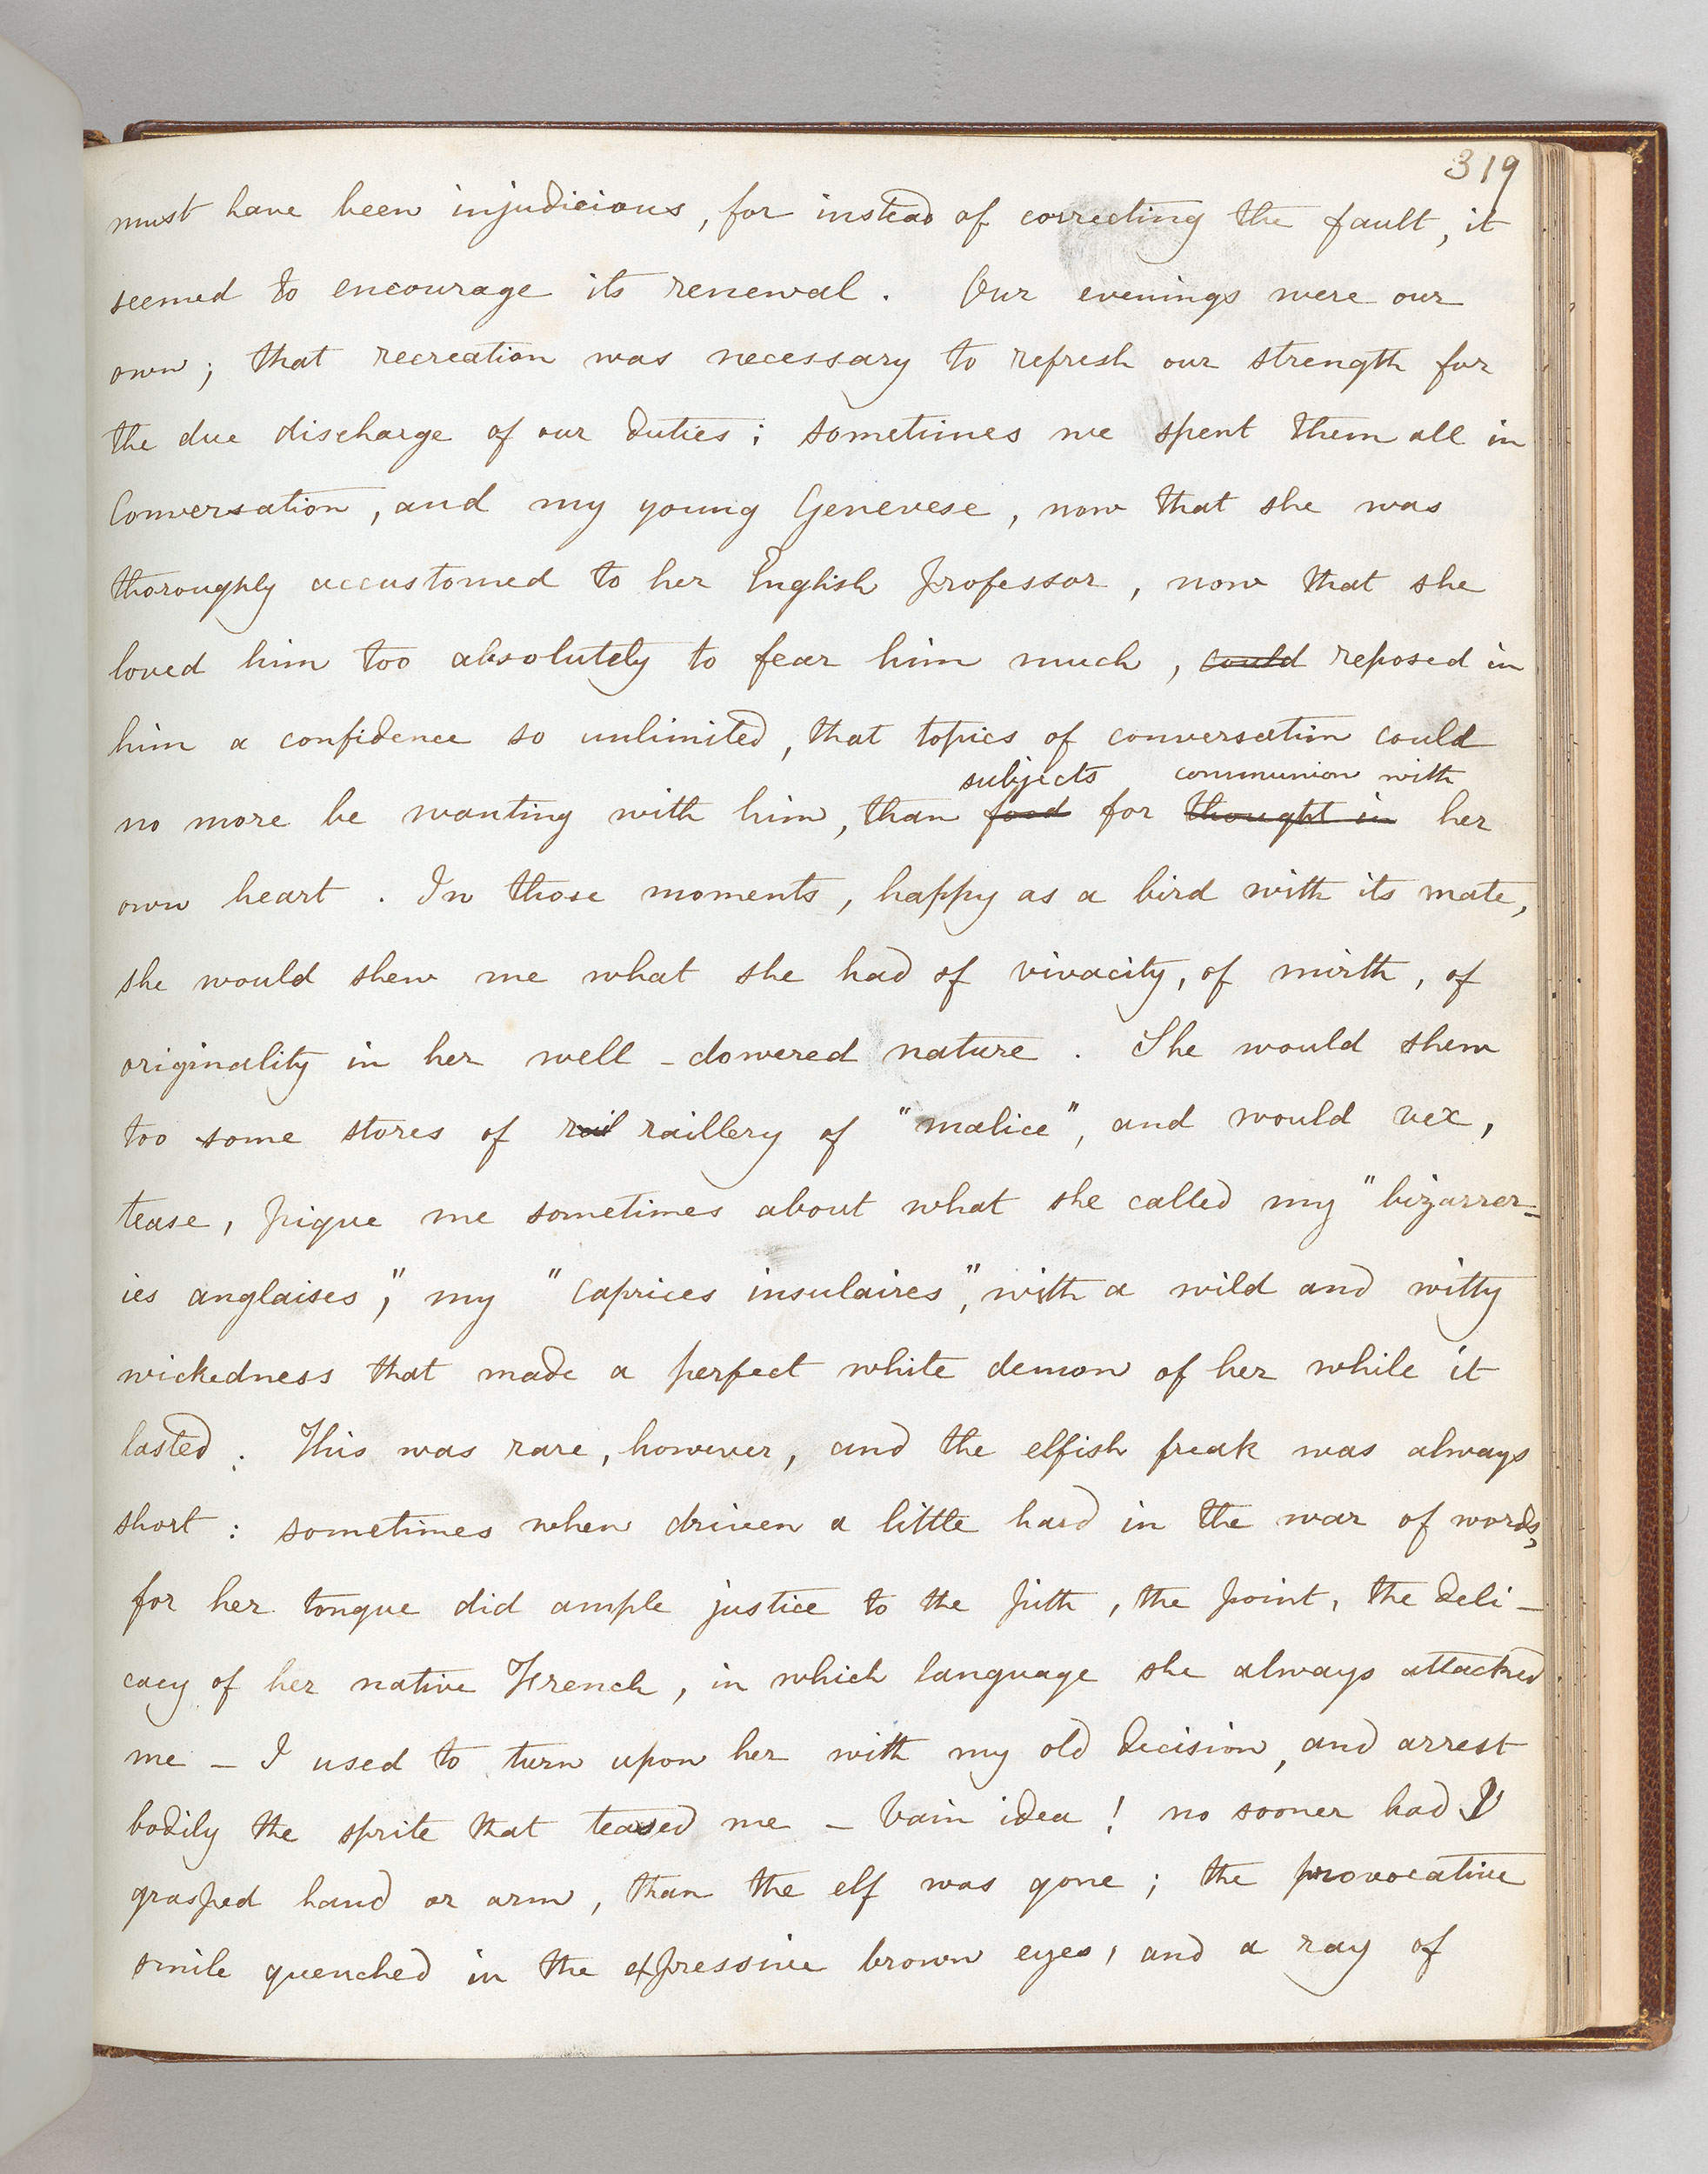 319
must have been injudicious, for instead of correcting the fault, it
seemed to encourage its renewal. Our evenings were our
own; that recreation was necessary to refresh our strength for
the due discharge of our duties; sometimes we spent them all in
Conversation, and my young Genevese, now that she was
thoroughly accustomed to her English Professor, now that she
loved him too absolutely to fear him much, could reposed in
him a confidence so unlimited, that topics of conversation could
subjects communion with
no more be wanting with him, than food for thought in her
own heart. In those moments, happy as a bird with its mate,
she would shew me what she had of vivacity, of mirth, of
originality in her well-dowered nature. She would shew
too some stores of rail raillery of "malice", and would vex,
tease, pique me sometimes about what she called my "bizarrer-
ies anglaises," my "caprices insulaires", with a wild and witty
wickedness that made a perfect white demon of her while it
lasted. This was rare, however, and the elfish freak was always
short: sometimes when driven a little hard in the war of words,
for her tongue did ample justice to the pith, the point, the deli-
cacy of her native French, in which language she always attacked
me - I used to turn upon her with my old decision, and arrest
bodily the sprite that teased me - Vain idea! no sooner had I
grasped hand or arm, than the elf was gone; the provocative
smile quenched in the expressive brown eyes, and a ray of